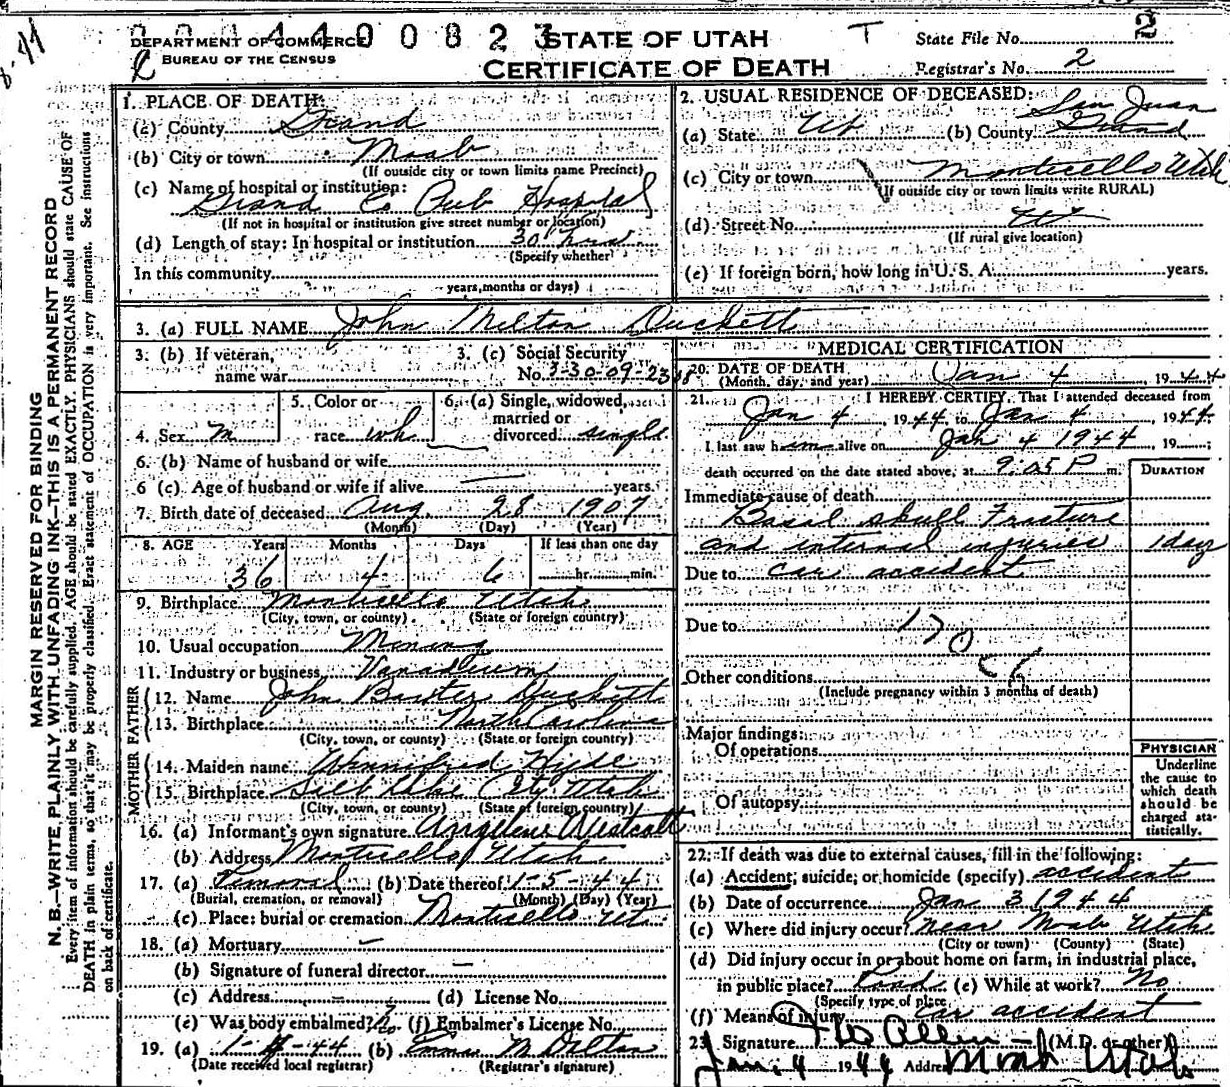 0 0 4 4 0 0 8 2 3
DEPARTMENT OF COMMERCE
BUREAU OF THE CENSUS
STATE OF UTAH
CERTIFICATE OF DEATH
T
State File No. 2
Registrar's No. 2
MARGIN RESERVED FOR BINDING
N. B.—WRITE PLAINLY WITH UNFADING INK—THIS IS A PERMANENT RECORD
Every item of information should be carefully supplied. AGE should be stated EXACTLY. PHYSICIANS should state CAUSE OF
DEATH in plain terms, so that it may be properly classified. Exact statement of OCCUPATION is very important. See instructions
on back of certificate.
1. PLACE OF DEATH:
(a) County Grand
(b) City or town Moab
(If outside city or town limits name Precinct)
(c) Name of hospital or institution:
Grand Co Pub Hospital
(If not in hospital or institution give street number or location)
(d) Length of stay: In hospital or institution 30 hrs
(Specify whether
In this community
years, months or days)
2. USUAL RESIDENCE OF DECEASED:
San Juan
(a) State Ut (b) County Grand
(c) City or town Monticello Utah
(If outside city or town limits write RURAL)
(d) Street No.
(If rural give location)
(e) If foreign born, how long in U. S. A. years.
3. (a) FULL NAME John Milton Duckett
3. (b) If veteran,
name war
3. (c) Social Security
No.
4. Sex m
5. Color or
race wh
6. (a) Single, widowed,
married or
divorced single
6. (b) Name of husband or wife
6 (c) Age of husband or wife if alive years.
7. Birth date of deceased Aug. 28 1907
(Month) (Day) (Year)
8. AGE Years Months Days If less than one day
36 4 6 hr. min.
9. Birthplace Monticello Utah
(City, town, or county) (State or foreign country)
10. Usual occupation Mining
11. Industry or business Vanadium
FATHER
12. Name John Baxter Duckett
13. Birthplace North Carolina
(City, town, or county) (State or foreign country)
MOTHER
14. Maiden name Winnifred Hyde
15. Birthplace Salt Lake City Utah
(City, town, or county) (State of foreign country)
16. (a) Informant's own signature Angelene Westcott
(b) Address Monticello, Utah.
17. (a) Removal (b) Date thereof 1-5-44
(Burial, cremation, or removal) (Month) (Day) (Year)
(c) Place: burial or cremation Monticello Ut.
18. (a) Mortuary —
(b) Signature of funeral director —
(c) Address — (d) License No.
(e) Was body embalmed? No (f) Embalmer's License No.
19. (a) 1-4-44 (b) Emma M Dalton
(Date received local registrar) (Registrar's signature)
MEDICAL CERTIFICATION
20. DATE OF DEATH
(Month, day, and year) Jan 4 1944
21. I HEREBY CERTIFY, That I attended deceased from
Jan 4, 1944 to Jan 4, 1944.
I last saw him alive on Jan 4 1944 19 ;
death occurred on the date stated above, at 9.05 P m.
DURATION
Immediate cause of death
Basal skull Fracture
and internal injuries 1 day
Due to car accident
Due to
170
Other conditions
(Include pregnancy within 3 months of death)
Major findings:
Of operations
Of autopsy
PHYSICIAN
Underline
the cause to
which death
should be
charged sta-
tistically.
22. If death was due to external causes, fill in the following:
(a) Accident, suicide, or homicide (specify) accident
(b) Date of occurrence Jan 3 1944
(c) Where did injury occur? near Moab Utah
(City or town) (County) (State)
(d) Did injury occur in or about home on farm, in industrial place,
in public place? Road (e) While at work? No
(Specify type of place
(f) Means of injury car accident
23. Signature Allen — (M.D. or other)
Jan. 4 1944 Address Moab Utah